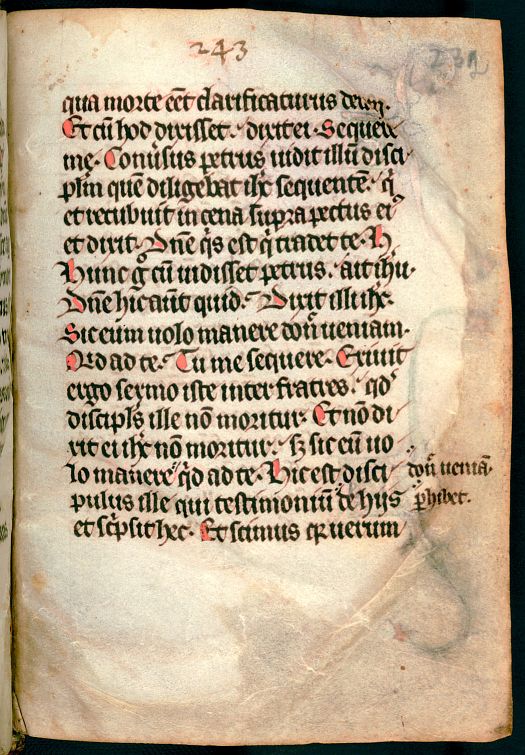 243
232
qua morte eēt clarificaturus deum.
Et cū hod dixisset. dixit ei. Sequere
me. Conūsus petrus uidit illū disci
plm̄ quē diligebat ihc̄ sequentē. q̄
et recubuit in cena supra pectus ei᷒
et dixit. Dn̄e q̄s est q̄ tradet te. H
Hunc g̊ cū uidisset petrus. ait ihū.
Dn̄e hic aūt quid. Dixit illi ihc̄.
Sic eum uolo manere don̄ ueniam.
Qd ad te. Tu me sequere. Exiuit
ergo sermo iste inter fratres. qd
discipls̄ ille nō moritur. Et nō di
xit ei ihc̄ nō moritur. sꝫ sic eū uo
lo manere q̄d ad te. Hic est disci
don̄ ueniā.
pulus ille qui testimoniū de hijs
ꝑhibet.
et sc̄psit hec. Et scimus qꝛ uerum